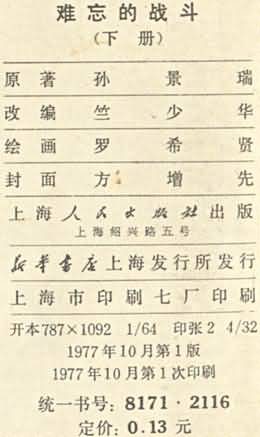 难忘的战斗
(下册)
原著 孙景瑞
改编 竺少华
绘画 罗希贤
封面 方增先
上海人民出版社出版
上海绍兴路五号
新华书店上海发行所发行
上海市印刷七厂印刷
开本787×1092 1/64 印张2 4/32
1977年10月第1版
1977年10月第1次印刷
统一书号: 8171·2116
定价: 0.13 元